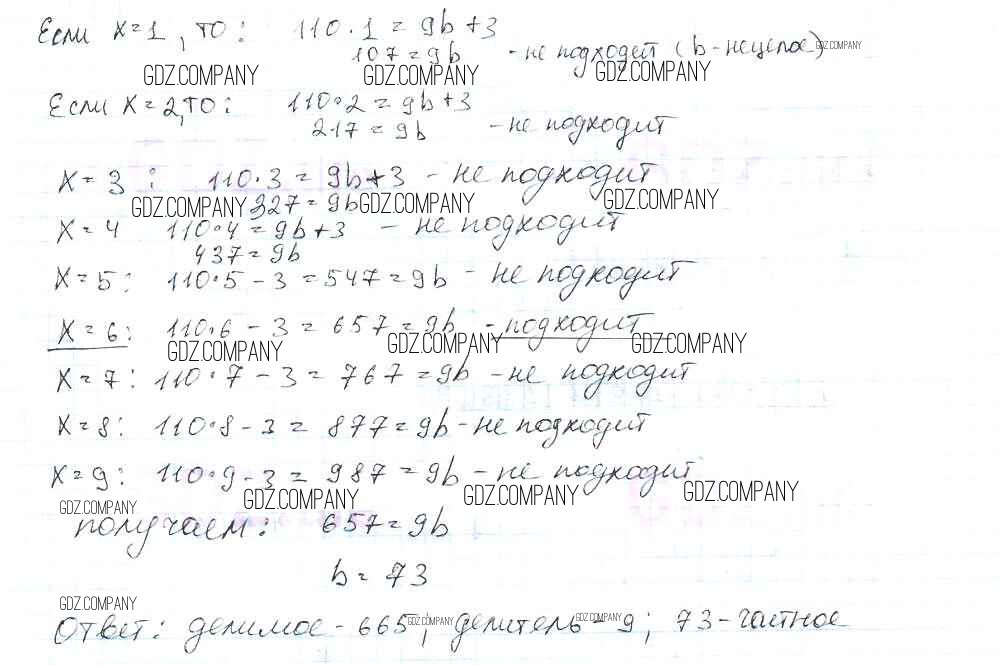 Если x=1, то: 110·1=9b+3
107=9b - не подходит (b-нецелое)
GDZ.COMPANY
GDZ.COMPANY GDZ.COMPANY GDZ.COMPANY
Если x=2, то: 110·2=9b+3
217=9b - не подходит
x=3: 110·3=9b+3 - не подходит
GDZ.COMPANY 327=9b GDZ.COMPANY GDZ.COMPANY
x=4 110·4=9b+3 - не подходит
437=9b
x=5: 110·5-3=547=9b - не подходит
x=6: 110·6-3=657=9b - подходит
GDZ.COMPANY GDZ.COMPANY GDZ.COMPANY
x=7: 110·7-3=767=9b - не подходит
x=8: 110·8-3=877=9b - не подходит
x=9: 110·9-3=987=9b - не подходит
GDZ.COMPANY GDZ.COMPANY GDZ.COMPANY GDZ.COMPANY
получаем: 657=9b
b=73
GDZ.COMPANY GDZ.COMPANY GDZ.COMPANY
Ответ: делимое - 665; делитель - 9; 73 - частное